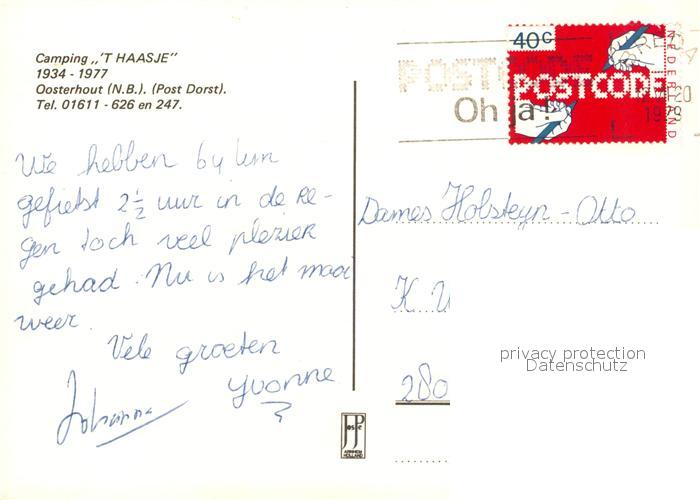 Camping ,,'T HAASJE"
1934 - 1977
Oosterhout (N.B.). (Post Dorst).
Tel. 01611 - 626 en 247.
We hebben 64 km
gefietst 2 1/2 uur in de Re-
gen toch veel plezier
gehad. Nu is het mooi
weer.
Vele groeten
Yvonne
Johanna
40c
NEDERLAND
POSTCODE
POST
Oh ja!
1979
Dames Holsteyn - Otto
K.
280
privacy protection
Datenschutz
JosPe
ARNHEM
HOLLAND